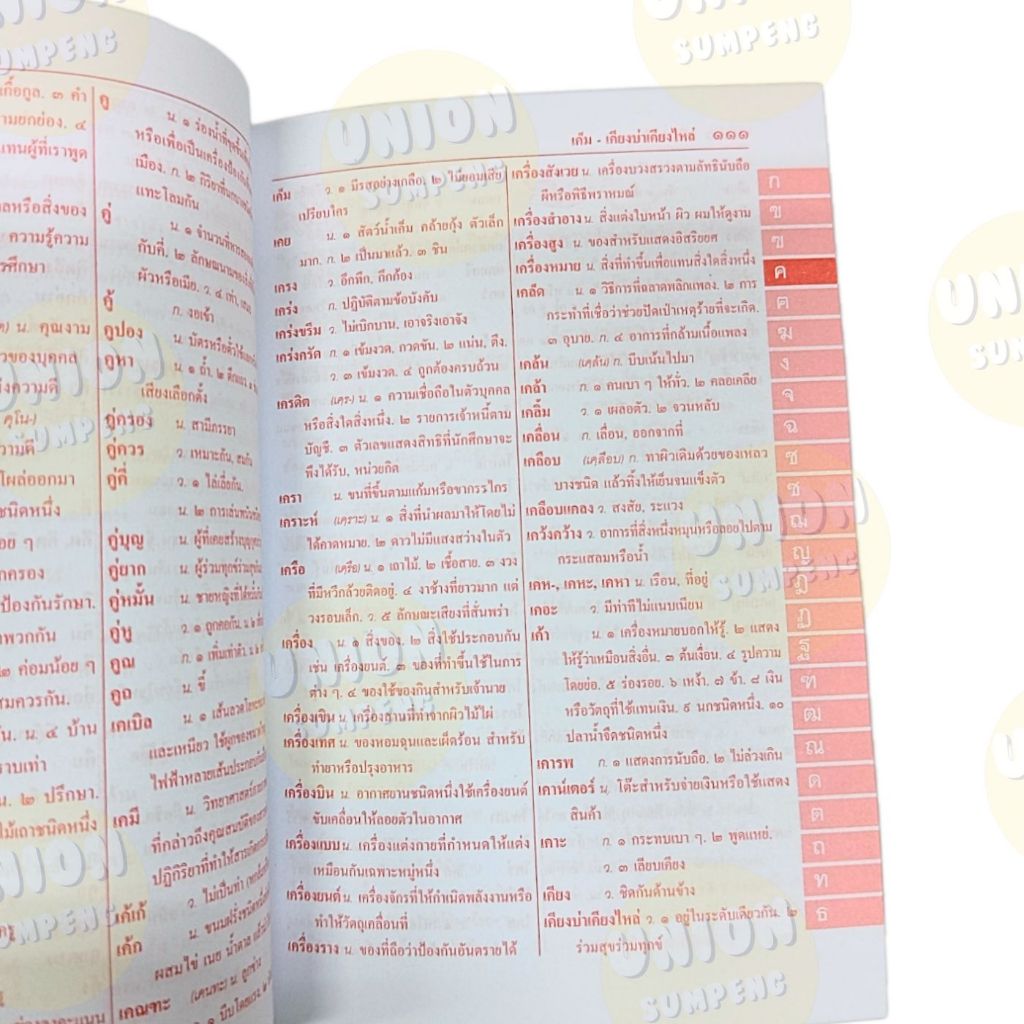 กื้อกูล. ๓ คำ
ามยกย่อง. ๔
แทนผู้ที่เราพูด
ลหรือสิ่งของ
ความรู้ความ
รศึกษา
น. คุณงาม
วของบุคคล
ความดี
คุโน-)
วามดี
โผล่ออกมา
ชนิดหนึ่ง
อย ๆ
กครอง
ป้องกันรักษา.
พวกกัน
๒ ค่อมน้อย ๆ
สมควรกัน.
ัน. น. ๔ บ้าน
ราบเท่า
น. ๒ ปรึกษา.
ไม้เถาชนิดหนึ่ง
คู
น. ๑ ร่องน้ำที่ขุดขึ้น
หรือเพื่อเป็นเครื่องป้องกัน
เมือง. ก. ๒
แทะโลมกัน
คู่
น. ๑ จำนวนที่หารสอง
กับคี่. ๒ ลักษณนามของ
ผัวหรือเมีย. ว. ๔ เท่า, เสมอ
คู้ ก. งอเข้า
คูปอง น. บัตรหรือตั๋วใช้แทน
คูหา น. ๑ ถ้ำ. ๒ ตึกแถว
เสียงเลือกตั้ง
คู่ครอง น. สามีภรรยา
คู่ควร ว. เหมาะกัน, สมกัน
คู่คี่ ว. ๑ ไล่เลี่ยกัน.
น. ๒ การเล่นทาย
คู่บุญ น. ผู้ที่เคยสร้างบุญ
คู่ยาก น. ผู้ร่วมทุกข์ร่วมสุขกัน
คู่หมั้น น. ชายหญิงที่ได้หมั้น
คูณ ก. ๑ เพิ่มเท่าตัว.
คูถ น. ขี้
เคเบิล น. ๑ เส้นลวดโลหะ
และเหนียว ใช้ผูกของหนัก
ไฟฟ้าหลายเส้นประกอบกัน
เคมี น. วิทยาศาสตร์
ที่กล่าวถึงคุณสมบัติของ
ปฏิกิริยาที่ทำให้สารเกิด
ว. ไม่เป็นท่า
เค้ก น. ขนมฝรั่งชนิดหนึ่ง
ผสมไข่ เนย น้ำตาล แล้ว
เคณฑะ (เคนทะ) น. ลูกช่าง
เค็ม - เคียงบ่าเคียงไหล่ ๑๑๑
เค็ม ว. ๑ มีรสอย่างเกลือ. ๒ ไม่ยอมเสีย
เปรียบใคร
เคย น. ๑ สัตว์น้ำเค็ม คล้ายกุ้ง ตัวเล็ก
มาก. ก. ๒ เป็นมาแล้ว. ๓ ชิน
เครง ว. อึกทึก, กึกก้อง
เคร่ง ก. ปฏิบัติตามข้อบังคับ
เคร่งขรึม ว. ไม่เบิกบาน, เอาจริงเอาจัง
เคร่งครัด ก. ๑ เข้มงวด, กวดขัน. ๒ แน่น, ตึง.
ว. ๓ เข้มงวด. ๔ ถูกต้องครบถ้วน
เครดิต (เคฺร-) น. ๑ ความเชื่อถือในตัวบุคคล
หรือสิ่งใดสิ่งหนึ่ง. ๒ รายการเจ้าหนี้ตาม
บัญชี. ๓ ตัวเลขแสดงสิทธิที่นักศึกษาจะ
พึงได้รับ, หน่วยกิต
เครา น. ขนที่ขึ้นตามแก้มหรือขากรรไกร
เคราะห์ (เคฺราะ) น. ๑ สิ่งที่นำผลมาให้โดยไม่
ได้คาดหมาย. ๒ ดาวไม่มีแสงสว่างในตัว
เครือ (เคฺรือ) น. ๑ เถาไม้. ๒ เชื้อสาย. ๓ งวง
ที่มีหวีกล้วยติดอยู่. ๔ งาช้างที่ยาวมาก แต่
วงรอบเล็ก. ว. ๕ ลักษณะเสียงที่สั่นพร่า
เครื่อง น. ๑ สิ่งของ. ๒ สิ่งใช้ประกอบกัน
เช่น เครื่องยนต์. ๓ ของที่ทำขึ้นใช้ในการ
ต่าง ๆ. ๔ ของใช้ของกินสำหรับเจ้านาย
เครื่องเขิน น. เครื่องสานที่ทำจากผิวไม้ไผ่
เครื่องเทศ น. ของหอมฉุนและเผ็ดร้อน สำหรับ
ทำยาหรือปรุงอาหาร
เครื่องบิน น. อากาศยานชนิดหนึ่งใช้เครื่องยนต์
ขับเคลื่อนให้ลอยตัวในอากาศ
เครื่องแบบ น. เครื่องแต่งกายที่กำหนดให้แต่ง
เหมือนกันเฉพาะหมู่หนึ่ง
เครื่องยนต์ น. เครื่องจักรที่ให้กำเนิดพลังงานหรือ
ทำให้วัตถุเคลื่อนที่
เครื่องราง น. ของที่ถือว่าป้องกันอันตรายได้
เครื่องสังเวย น. เครื่องบวงสรวงตามลัทธินับถือ
ผีหรือพิธีพราหมณ์
เครื่องสำอาง น. สิ่งแต่งใบหน้า ผิว ผมให้ดูงาม
เครื่องสูง น. ของสำหรับแสดงอิสริยยศ
เครื่องหมาย น. สิ่งที่ทำขึ้นเพื่อแทนสิ่งใดสิ่งหนึ่ง
เคล็ด น. ๑ วิธีการที่ฉลาดพลิกแพลง. ๒ การ
กระทำที่เชื่อว่าช่วยปัดเป่าเหตุร้ายที่จะเกิด.
๓ อุบาย. ก. ๔ อาการที่กล้ามเนื้อแพลง
เคล้น (เคฺล้น) ก. บีบเน้นไปมา
เคล้า ก. ๑ คนเบา ๆ ให้ทั่ว. ๒ คลอเคลีย
เคลิ้ม ว. ๑ เผลอตัว. ๒ จวนหลับ
เคลื่อน ก. เลื่อน, ออกจากที่
เคลือบ (เคฺลือบ) ก. ทาผิวเดิมด้วยของเหลว
บางชนิด แล้วทิ้งให้เย็นจนแข็งตัว
เคลือบแคลง ว. สงสัย, ระแวง
เคว้งคว้าง ว. อาการที่สิ่งหนึ่งหมุนหรือลอยไปตาม
กระแสลมหรือน้ำ
เคห-, เคหะ, เคหา น. เรือน, ที่อยู่
เคอะ ว. มีท่าทีไม่แนบเนียน
เค้า น. ๑ เครื่องหมายบอกให้รู้. ๒ แสดง
ให้รู้ว่าเหมือนสิ่งอื่น. ๓ ต้นเงื่อน. ๔ รูปความ
โดยย่อ. ๕ ร่องรอย. ๖ เหง้า. ๗ ขั้ว. ๘ เงิน
หรือวัตถุที่ใช้แทนเงิน. ๙ นกชนิดหนึ่ง. ๑๐
ปลาน้ำจืดชนิดหนึ่ง
เคารพ ก. ๑ แสดงการนับถือ. ๒ ไม่ล่วงเกิน
เคาน์เตอร์ น. โต๊ะสำหรับจ่ายเงินหรือใช้แสดง
สินค้า
เคาะ ก. ๑ กระทบเบา ๆ. ๒ พูดแหย่.
ว. ๓ เลียบเคียง
เคียง ว. ชิดกันด้านข้าง
เคียงบ่าเคียงไหล่ ว. ๑ อยู่ในระดับเดียวกัน. ๒
ร่วมสุขร่วมทุกข์
ก
ข
ฃ
ค
ฅ
ฆ
ง
จ
ฉ
ช
ซ
ฌ
ญ
ฎ
ฏ
ฐ
ฑ
ฒ
ณ
ด
ต
ถ
ท
ธ
UNION
SUMPENG